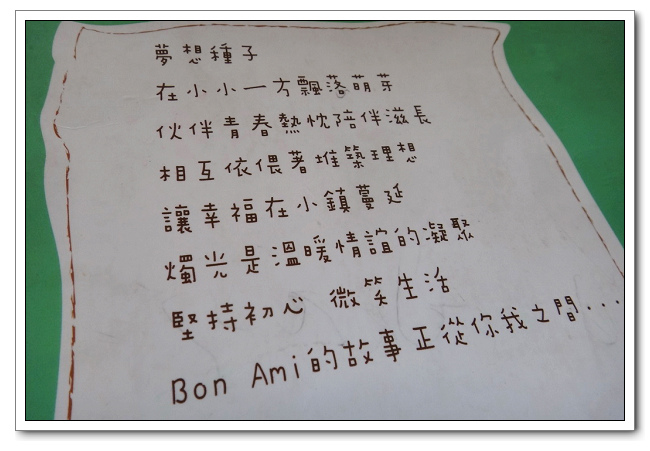 夢想種子
在小小一方飄落萌芽
伙伴青春熱忱陪伴滋長
相互依偎著堆築理想
讓幸福在小鎮蔓延
燭光是溫暖情誼的凝聚
堅持初心 微笑生活
Bon Ami的故事正從你我之間...